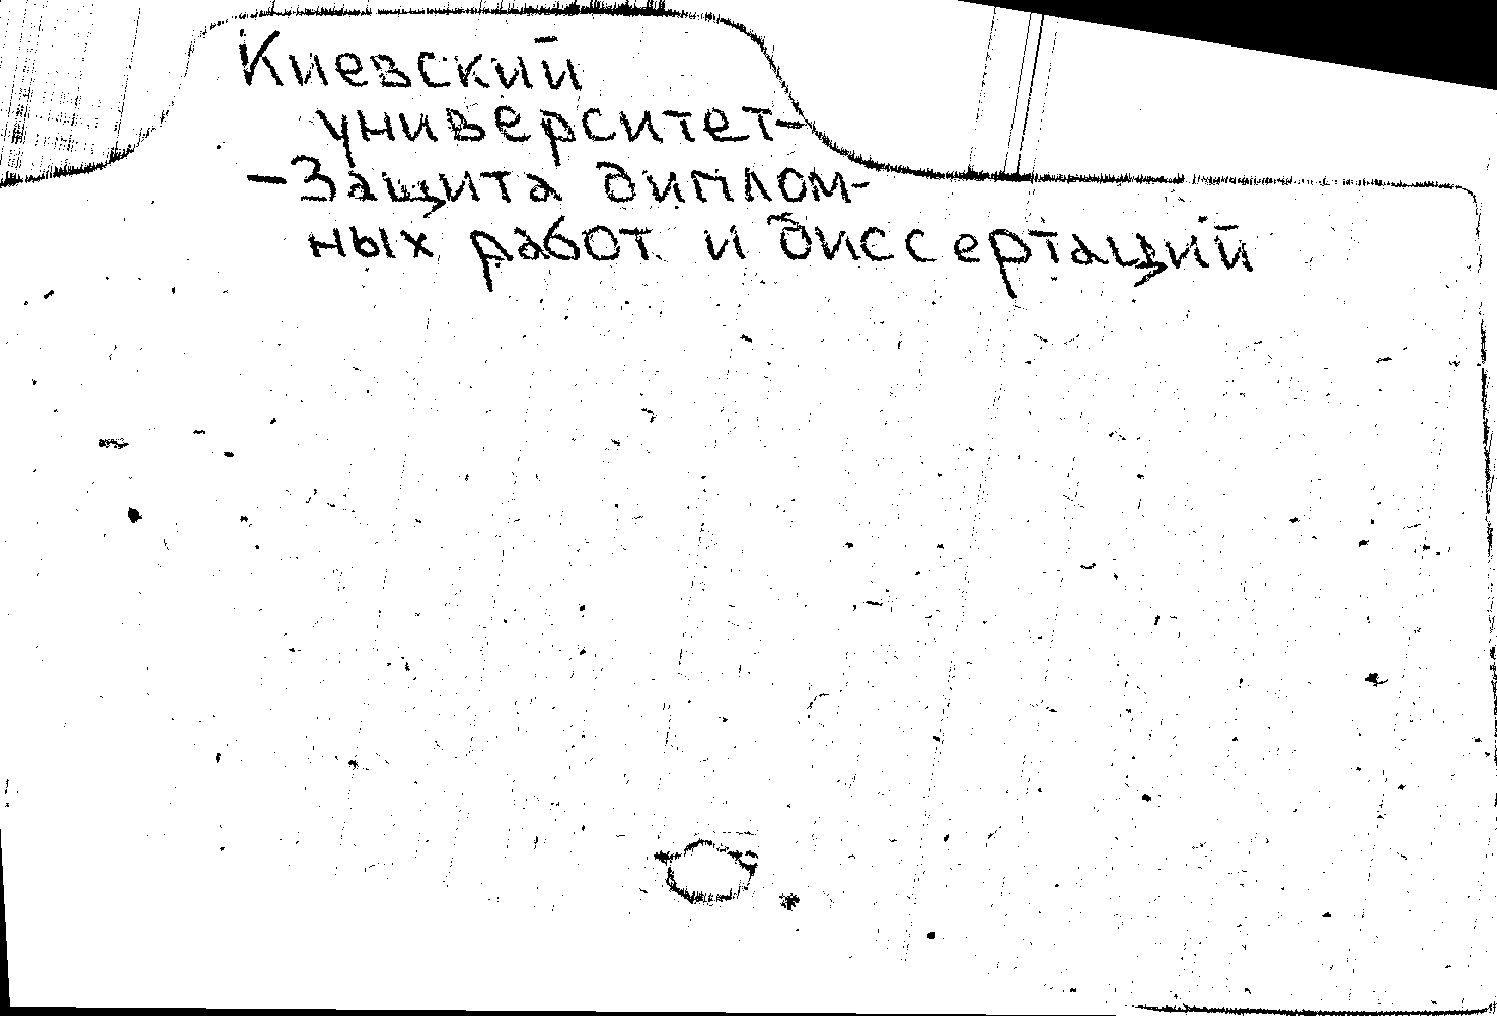 Киевский
университет-
-Защита диплом-
ных работ и диссертаций